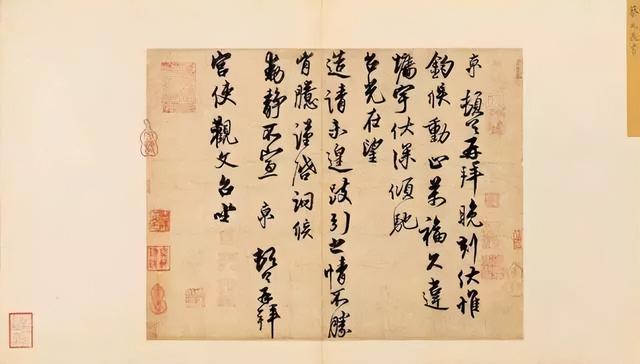 京 頓首再拜晚刻伏惟
鈞候動止萬福久違
墻宇伏深傾馳
台光在望
造請未遑跂引之情不勝
胷臆謹啓詢候
動静不宣 京 頓首再拜
宫使觀文台坐